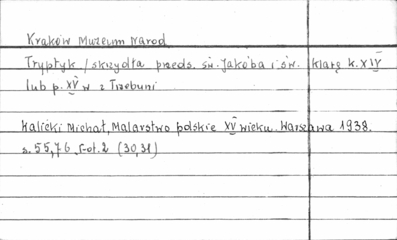 Kraków Muzeum Narod.
Tryptyk /skrzydła przeds. św. Jakóba i św. Klarę k. XIV
lub p. XV w z Trzebuni
Walicki Michał, Malarstwo polskie XV wieku. Warszawa 1938.
s. 55, 76, fot. 2 (30, 31)